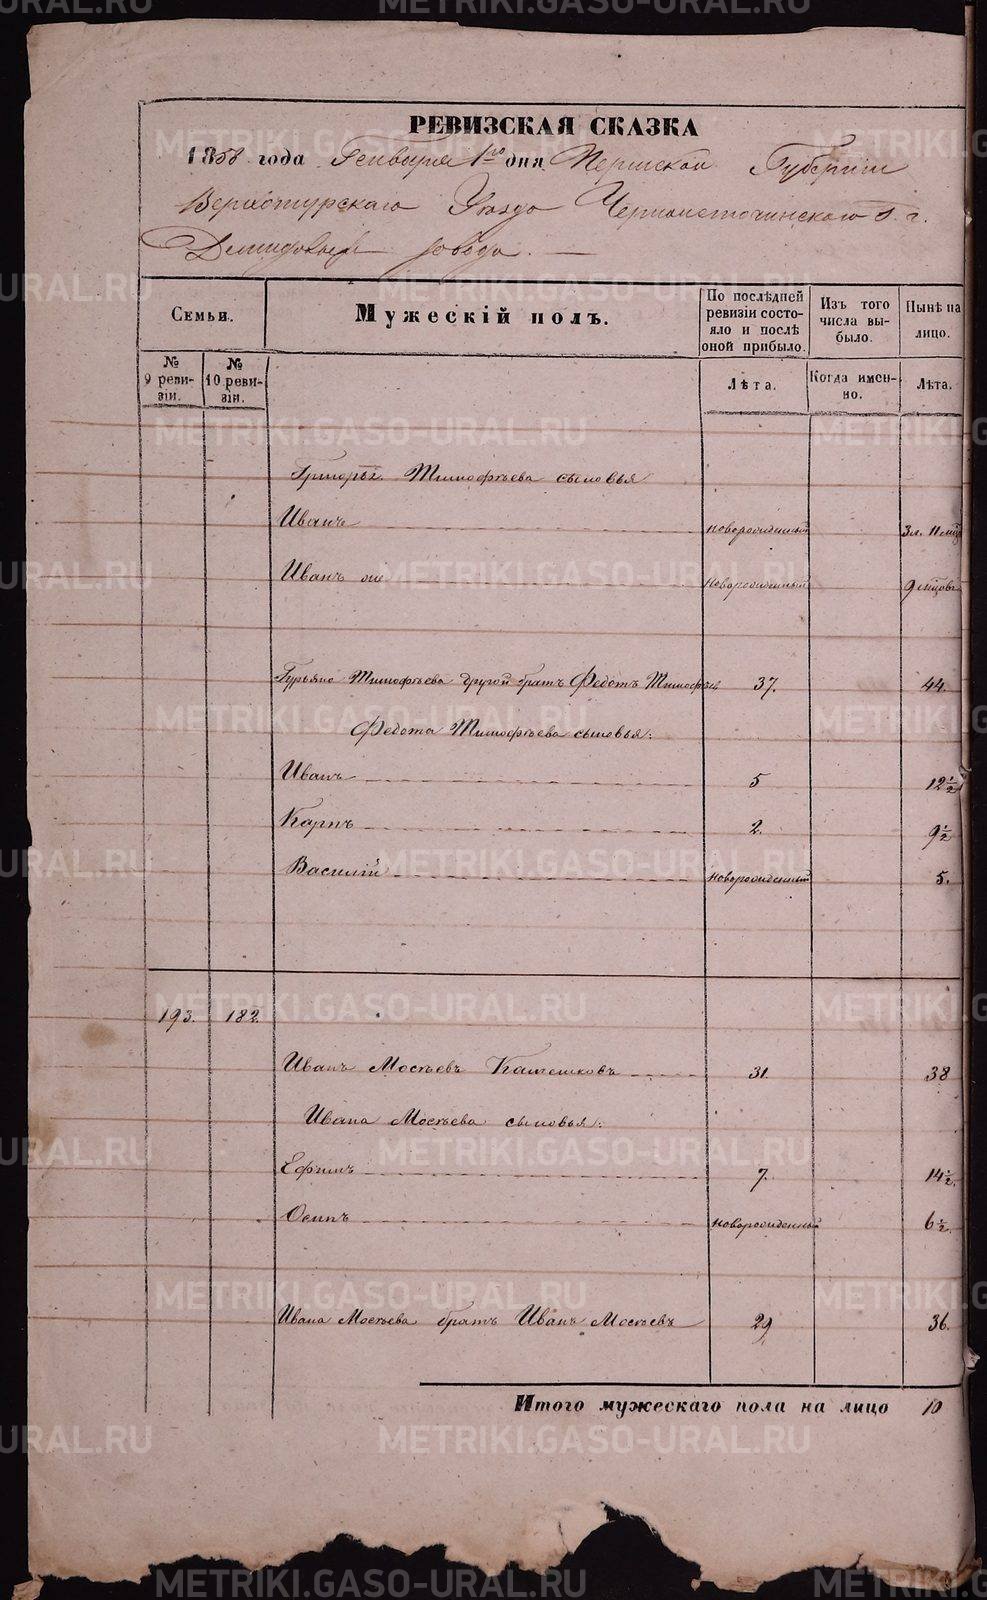 РЕВИЗСКАЯ СКАЗКА
1858 года Генваря 1го дня Пермской Губернии
Верхотурскаго Уезда Черноисточинскаго г. г.
Демидовых завода.
Семьи.
Мужескій полъ.
По послѣдней ревизіи состояло и послѣ оной прибыло.
Изъ того числа выбыло.
Нынѣ на лицо.
№ 9 ревизіи.
№ 10 ревизіи.
Лѣта.
Когда именно.
Лѣта.
Григорья Тимофѣева сыновья
Иванъ новорожденный 3 л. 11 мѣц
Иванъ же новорожденный 9 мѣцовъ
Гурьяна Тимофѣева другой братъ Федотъ Тимофѣев 37. 44.
Федота Тимофѣева сыновья:
Иванъ 5 12 ½
Карпъ 2. 9 ½
Василій новорожденный 5.
193. 182.
Иванъ Мосѣевъ 31. 38
Ивана Мосѣева сыновья:
Ефимъ 7. 14 ½.
Осипъ новорожденный 6 ½.
Ивана Мосѣева братъ Иванъ Мосѣевъ 29. 36.
Итого мужескаго пола на лицо 10
METRIKI.GASO-URAL.RU